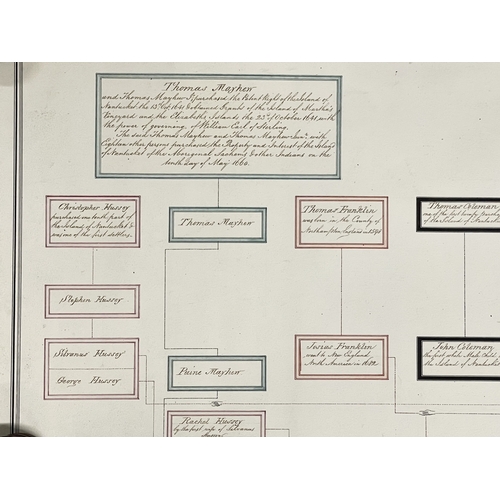 Thomas Mayhew
and Thomas Mayhew Jr purchased the Patent Right of the Island of
Nantucket the 13th Oct. 1641 & obtained Grants of the Island of Martha's
Vineyard and the Elizabeths Islands the 23d of October 1641, with
the power of governing, of William Earl of Sterling.
The said Thomas Mayhew and Thomas Mayhew Junr. with
Eighteen other persons purchased the Property and Interest of the Island
of Nantucket of the Aboriginal Sachems & other Indians on the
tenth day of May 1660.
Christopher Hussey
purchased one tenth part of
the Island of Nantucket &
was one of the first settlers.
Thomas Mayhew
Thomas Franklin
was born in the County of
Northampton England in 1598
Thomas Coleman
one of the first twenty
of the Island of Nantucket
Stephen Hussey
Silvanus Hussey
George Hussey
Paine Mayhew
Josias Franklin
went to New England
North America in 1682
John Coleman
the first white Male Child
the Island of Nantucket
Rachel Hussey
by the first wife of Silvanus
Hussey